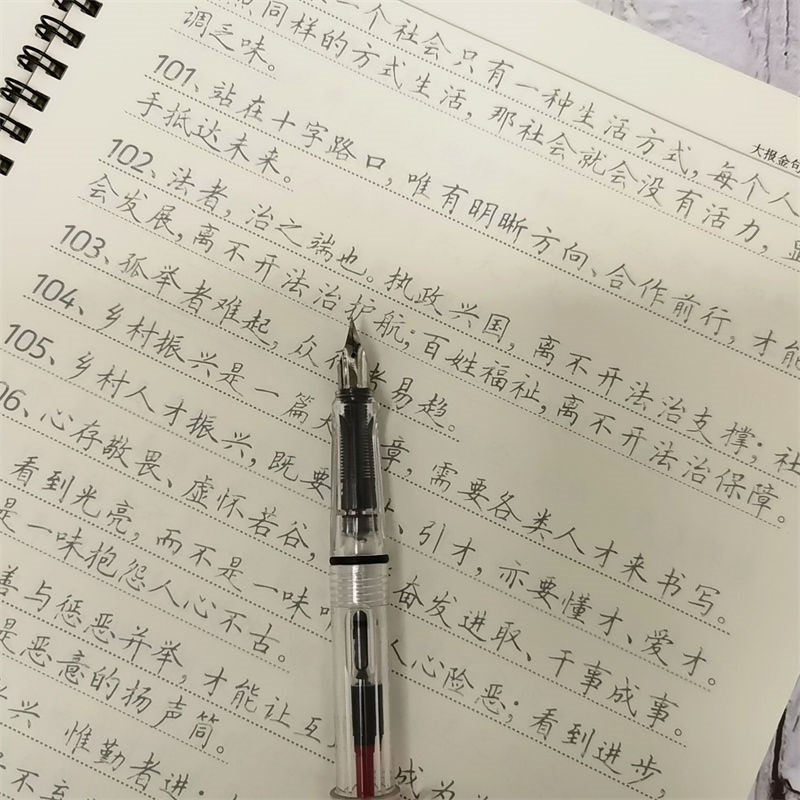 大报金句
一个社会只有一种生活方式，每个人
同样的方式生活，那社会就会没有活力，
调乏味。
101、站在十字路口，唯有明晰方向、合作前行，才能
手抵达未来。
102、法者，治之端也。执政兴国，离不开法治支撑；社
会发展，离不开法治护航；百姓福祉，离不开法治保障。
103、孤举者难起，众 者易趋。
104、乡村振兴是一篇 章，需要各类人才来书写。
105、乡村人才振兴，既要 、引才，亦要懂才、爱才。
06、心存敬畏、虚怀若谷， 奋发进取、干事成事。
看到光亮，而不是一味 人心险恶；看到进步，
是一味抱怨人心不古。
善与惩恶并举，才能让互 成为
是恶意的扬声筒。
兴 惟勤者进；